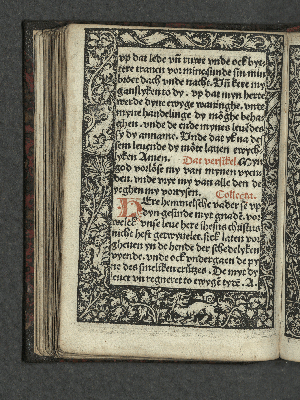 vp dat lede vñ ruwe vnde ock byt-
tere tranen vor mine sunde sin myn
broet dach vnde nacht. Vñ kere my
gansslyken to dy. vp dat myn herte
werde dyne ewyge waninghe. vnde
myne handelinge dy möghe beha-
ghen. vnde de ende mynes leuedes
sy dy anname. Vnde dat yk na des-
sem leuende dy möte lauen ewych-
lyken Amen. Dat versikel Myn
god vorlöse my van mynen vyen-
den. vnde vrye my van alle den de
yeghen my vprysen. Collecta.
HEre hemmelsche vader se vp
dyn gesinde myt gnadē. vor
welck vnse leue here ihesus christus
nicht heft getwyuelt. sick laten vor
gheuen yn de hende der schedelyken
vyende. vnde ock vndergaen de py
ne des smeliken crützes. De myt dy
leuet vñ regneret to ewygē tydē. A.